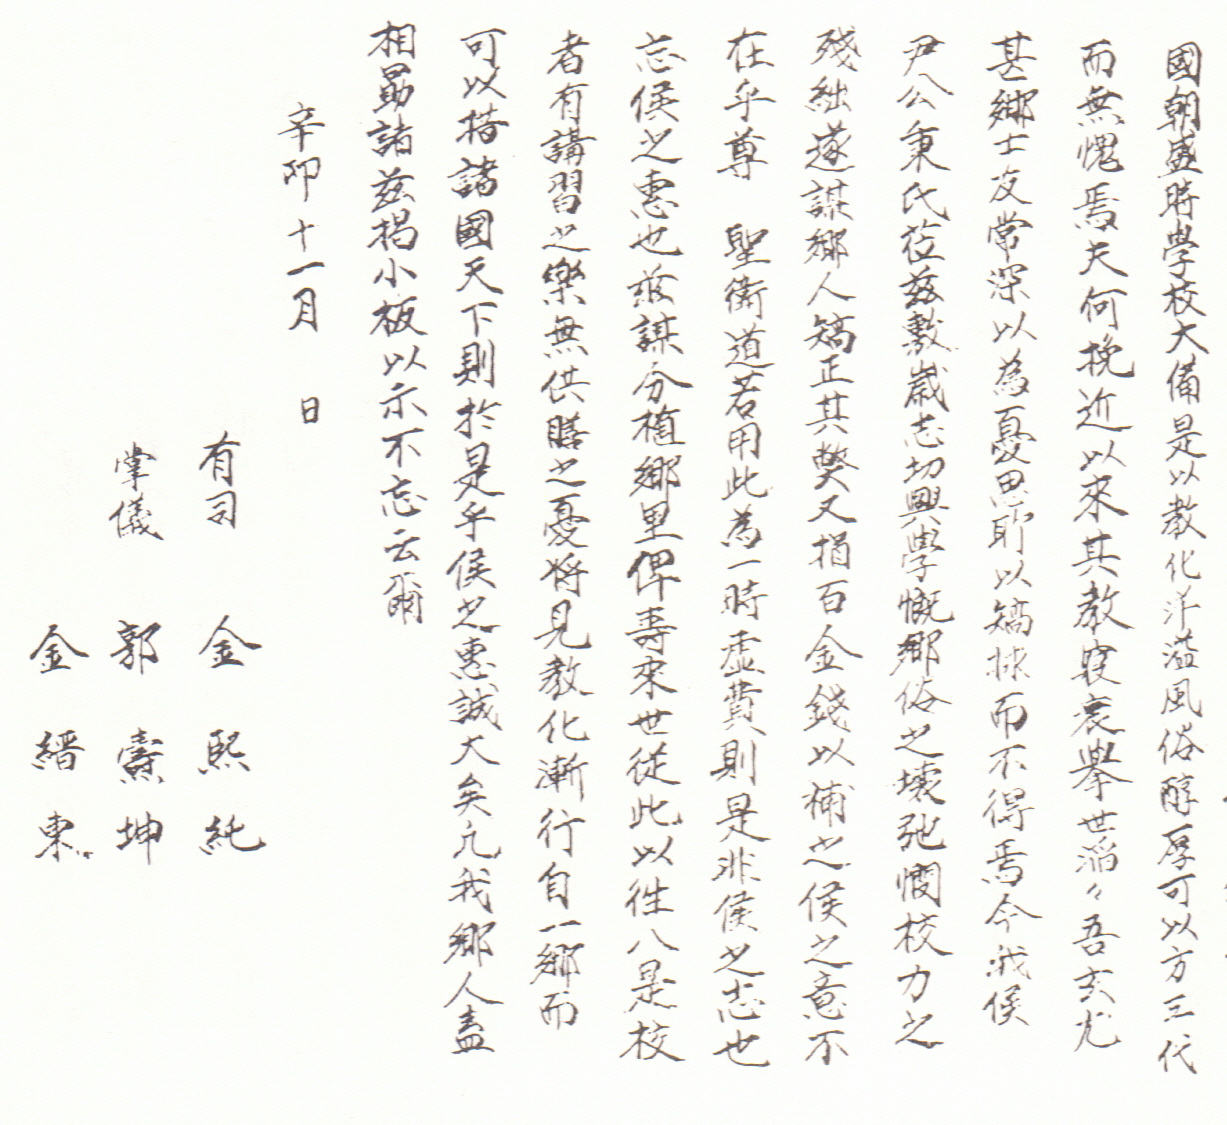 國朝盛時學校大備是以敎化洋溢風俗醇厚可以方三代
而無愧焉夫何挽近以來其敎寢衰擧世滔々吾玄尤
甚鄕士友常深以為憂思所以矯捄而不得焉今我侯
尹公秉氏莅玆數歲志切興學慨鄕俗之壞弛憫校力之
殘絀遂謀鄕人矯正其獘又捐百金錢以補之侯之意不
在乎尊 聖衛道若用此為一時虛費則是非侯之志也
忘侯之惠也玆謀分殖鄕里俾壽來世從此以徃入是校
者有講習之樂無供賻之憂將見敎化漸行自一鄕而
可以措諸國天下則於是乎侯之惠誠大矣凡我鄕人盍
相勗諸玆揭小板以示不忘云爾
辛卯十一月 日
有司 金熙純
掌儀 郭 坤
金縉東